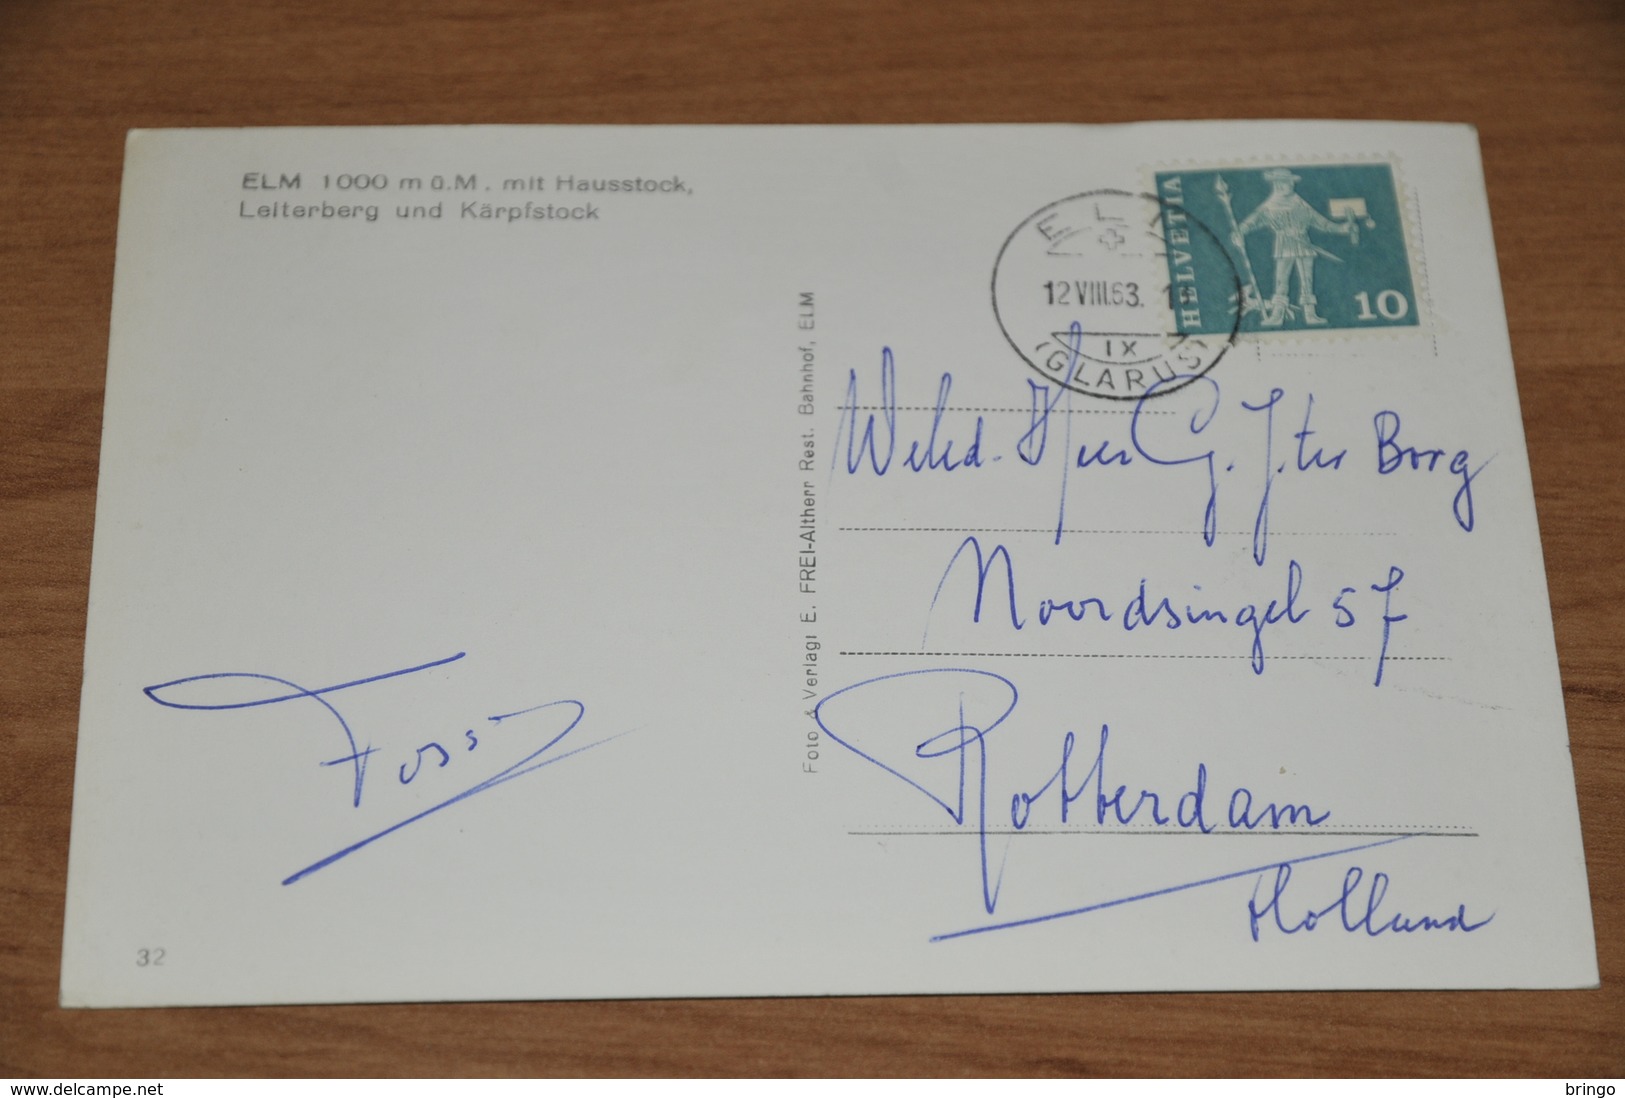 ELM 1000 m ü.M. mit Hausstock,
Leiterberg und Kärpfstock
HELVETIA
10
12.VIII.63.
IX
(GLARUS)
Foto & Verlag: E. FREI-Altherr Rest. Bahnhof, ELM
Heer G. J. ter Borg
Noordsingel 57
Rotterdam
Holland
32
www.delcampe.net
bringo